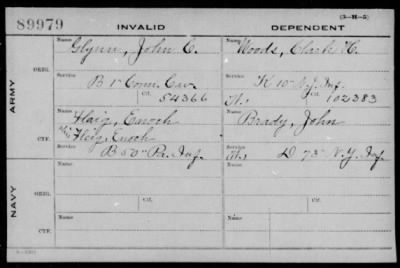 89979 INVALID DEPENDENT (3-H-5)
Name Glynn, John C. Name Woods, Clark H.
ORIG.
Service B 1" Conn. Cav. Service K 10" N.J. Inf.
Ctf. 54366 Ctf. 102383
ARMY
Name Haig, Enoch Name Brady, John
Fleig, Enoch
CTF.
Service B 50" Pa. Inf. Service D 73" N.Y. Inf.
Name Name
ORIG.
Service Service
Ctf. Ctf.
NAVY
Name Name
CTF.
Service Service